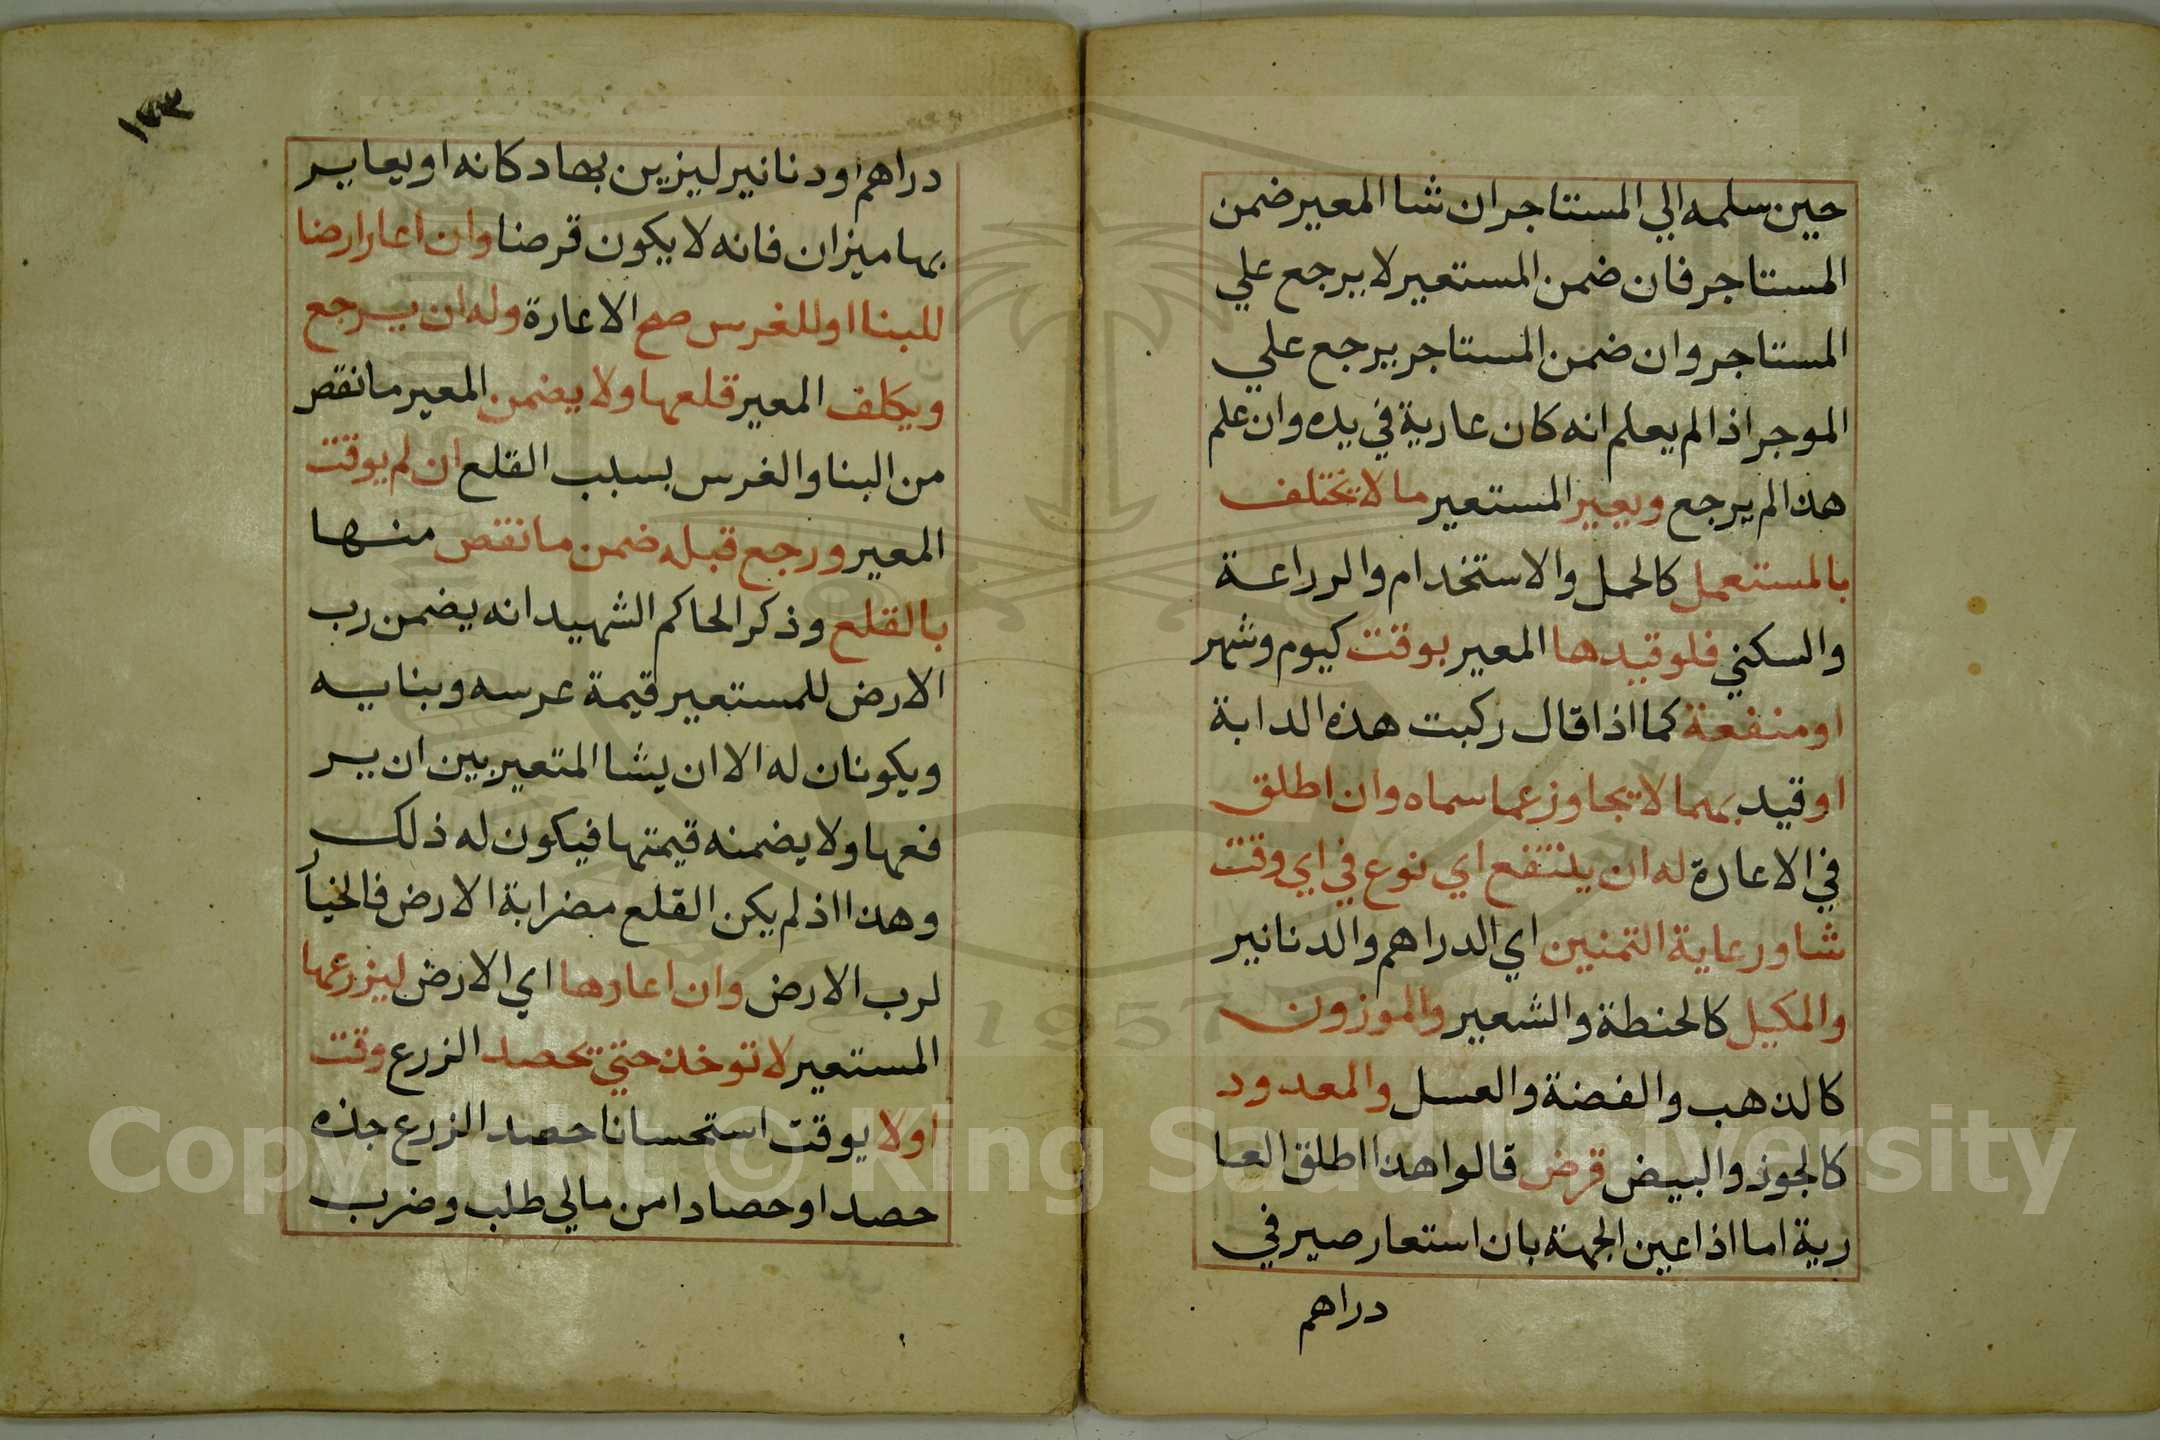 حين سلمه الي المستاجر ان شا المعير ضمن
المستاجر فان ضمن المستعير لا يرجع علي
المستاجر وان ضمن المستاجر يرجع علي
الموجر اذا لم يعلم انه كان عارية في يده وان علم
هذا لم يرجع ويعير المستعير ما لا يختلف
بالمستعمل كالحمل والاستخدام والزراعة
والسكني فلو قيدها المعير بوقت كيوم وشهر
او منفعة كما اذا قال ركبت هذه الدابة
او قيد بهما لا يجاوز عما سماه وان اطلق
في الاعارة له ان ينتفع اي نوع في اي وقت
شا ورعاية التمنين اي الدراهم والدنانير
والمكيل كالحنطة والشعير والموزون
كالذهب والفضة والعسل والمعدود
كالجوز والبيض قرض قالوا هذا اطلق العا
رية اما اذا عين الجهة بان استعار صير في
دراهم
١٧٣
دراهم او دنانير ليزين بها دكانه او يعاير
بها ميزان فانه لا يكون قرضا وان اعار ارضا
للبنا او للغرس صح الاعارة وله ان يرجع
ويكلف المعير قلعها ولا يضمن المعير ما نقص
من البنا والغرس بسبب القلع ان لم يوقت
المعير ورجع قبله ضمن ما نقص منها
بالقلع وذكر الحاكم الشهيد انه يضمن رب
الارض للمستعير قيمة عرسه وبنايه
ويكونان له الا ان يشا المتعير بين ان ير
فعها ولا يضمنه قيمتها فيكون له ذلك
وهذا اذ لم يكن القلع مضرا بة الارض فالخيار
لرب الارض وان اعارها اي الارض ليزرعها
المستعير لا توخذ حتي تحصد الزرع وقت
اولا يوقت استحسانا حصد الزرع جذه
حصدا وحصادا من مالي طلب وضرب
Copyright © King Saud University
1957